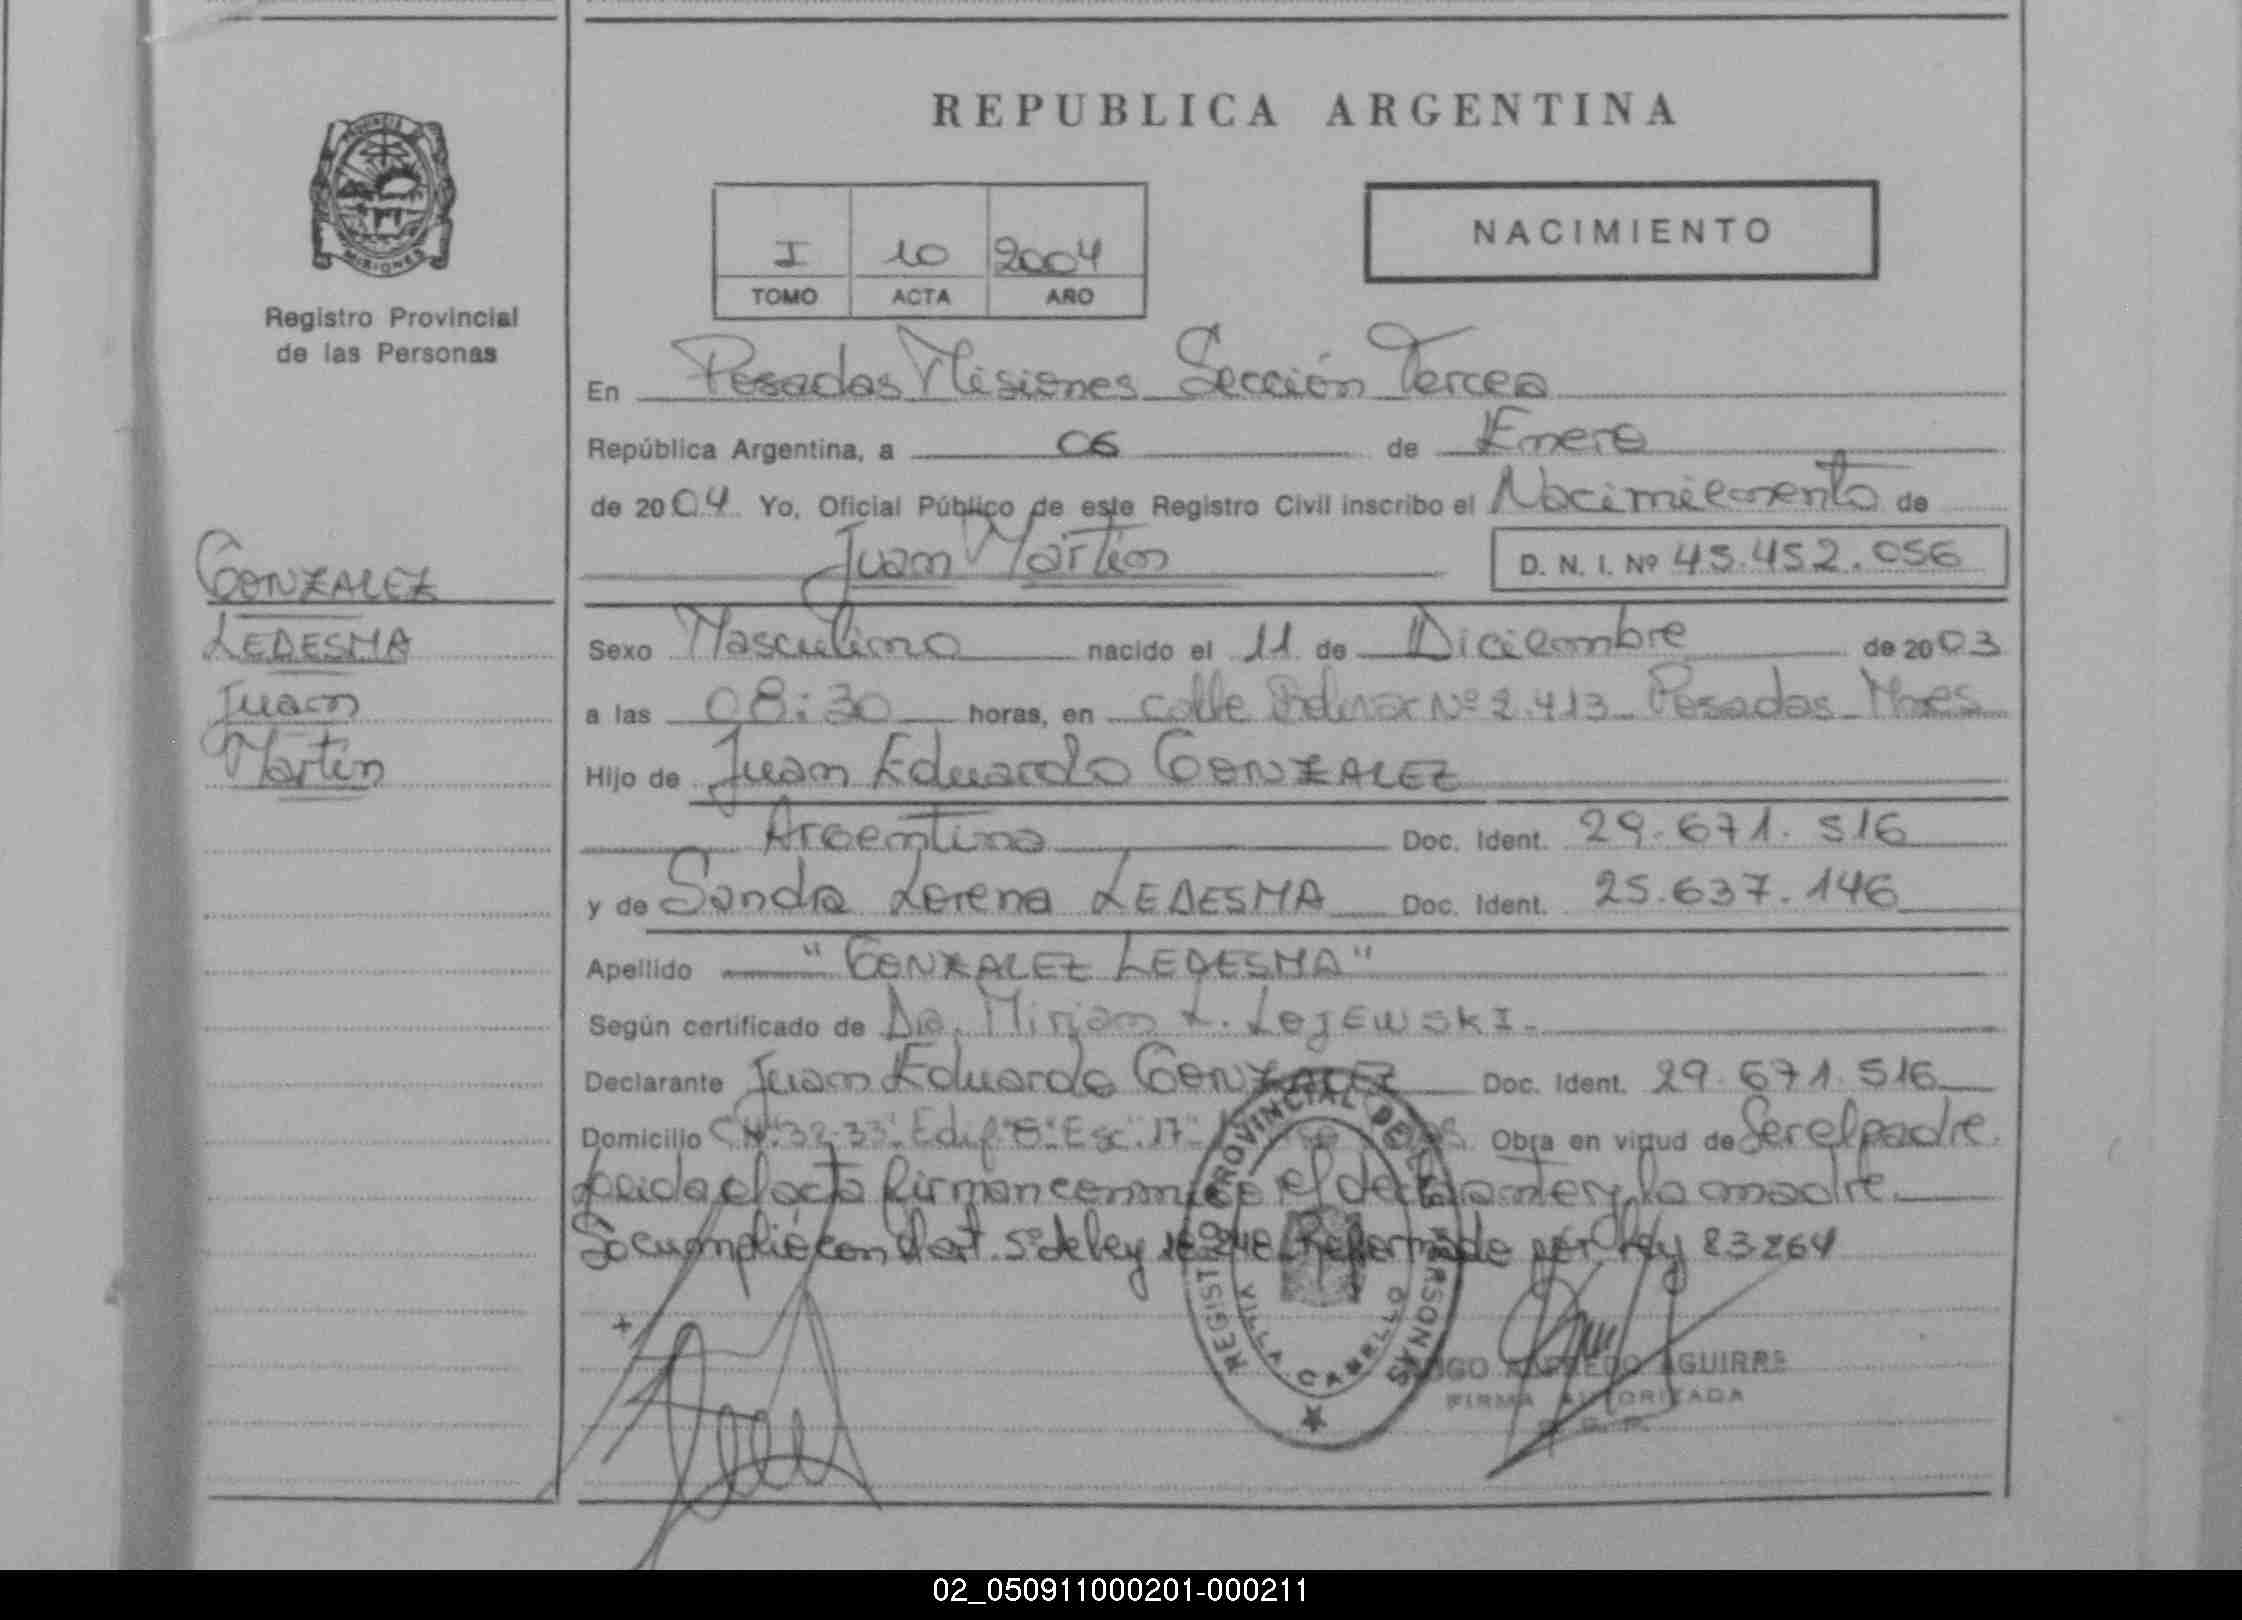 REPUBLICA ARGENTINA
PROVINCIA DE MISIONES
Registro Provincial
de las Personas
I 10 2004
TOMO ACTA AÑO
NACIMIENTO
En Posadas Misiones Sección Tercera
República Argentina, a 06 de Enero
de 2004 Yo, Oficial Público de este Registro Civil inscribo el Nacimiento de
Juan Martin D. N. I. Nº 45.452.056
GONZALEZ
LEDESMA
Juan
Martin
Sexo Masculino nacido el 11 de Diciembre de 2003
a las 08:30 horas, en calle Bolivar Nº 2.413 Posadas Mnes
Hijo de Juan Eduardo GONZALEZ
Argentino Doc. Ident. 29.671.516
y de Sandra Lorena LEDESMA Doc. Ident. 25.637.146
Apellido "GONZALEZ LEDESMA"
Según certificado de Dra. Miriam L. Lojewski.
Declarante Juan Eduardo GONZALEZ Doc. Ident. 29.671.516
Domicilio Ch. 32-33 Edif. Esc. 17 Obra en virtud de Ser el padre
Leida el acta firman conmigo el declarante y la madre
Se cumplió con el art. 5º de ley 18248 Reformado por ley 23264
REGISTRO PROVINCIAL DE LAS PERSONAS
VILLA CABELLO
HUGO ALFREDO AGUIRRE
FIRMA AUTORIZADA
02_050911000201-000211